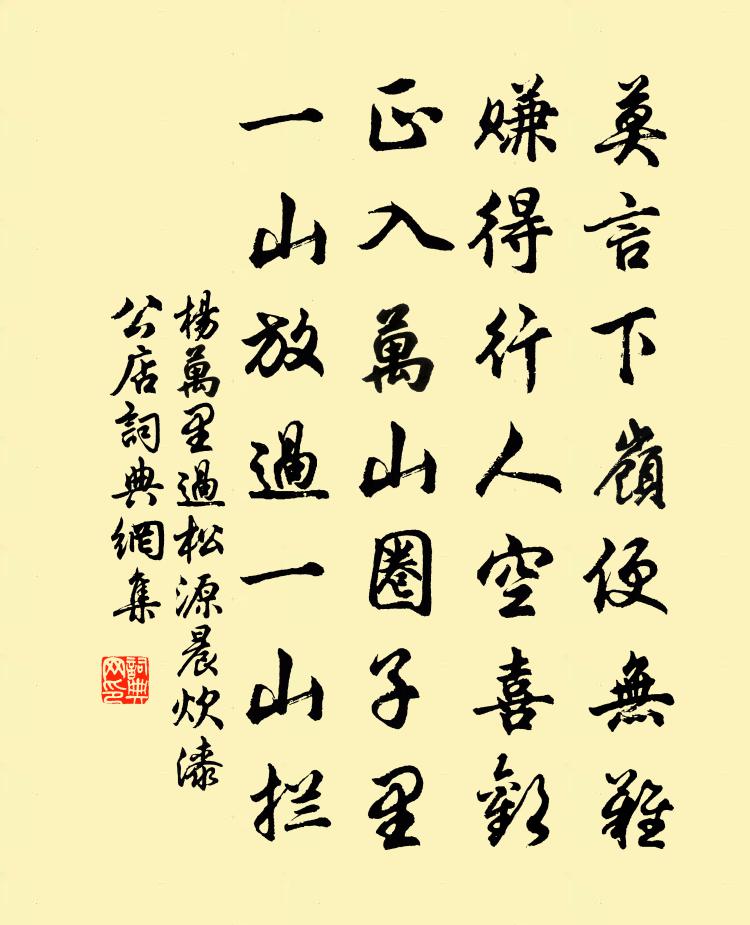 莫言下嶺便無難
賺得行人空喜歡
正入萬山圈子里
一山放過一山拦
楊萬里過松源晨炊漆
公店詞典網集
詞典
网印